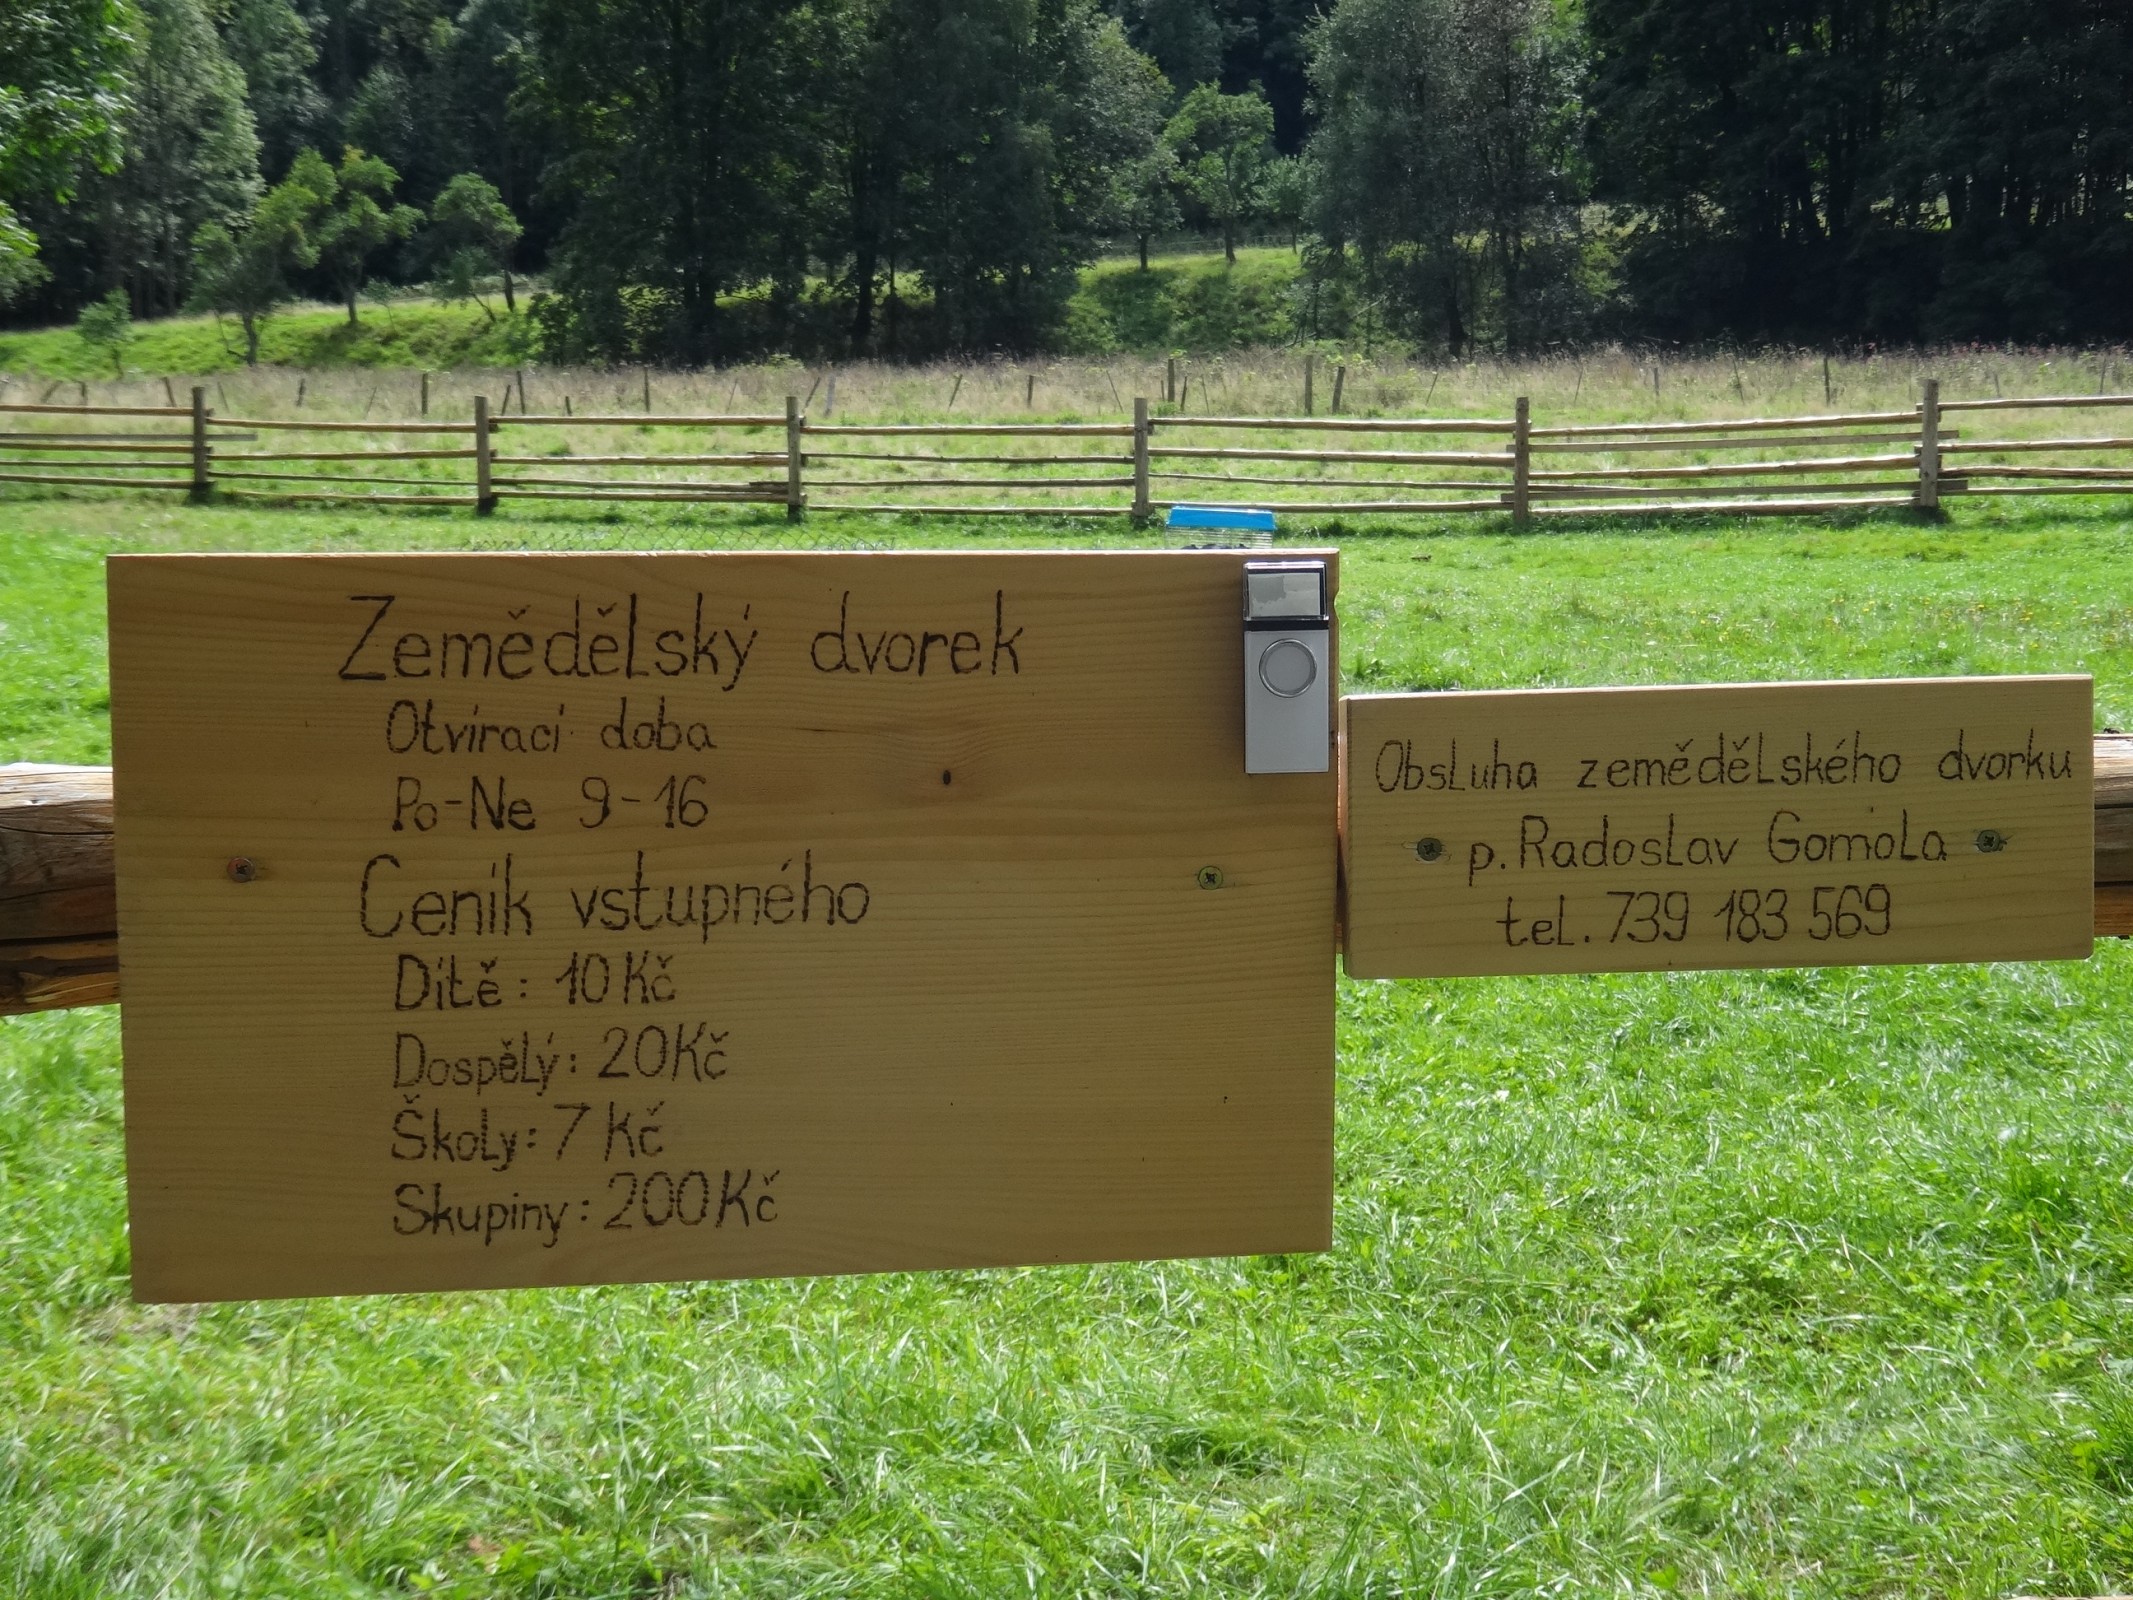 Zemědělský dvorek
Otvírací doba
Po-Ne 9-16
Ceník vstupného
Dítě: 10 Kč
Dospělý: 20Kč
Školy: 7 Kč
Skupiny: 200Kč
Obsluha zemědělského dvorku
p. Radoslav Gomola
tel. 739 183 569